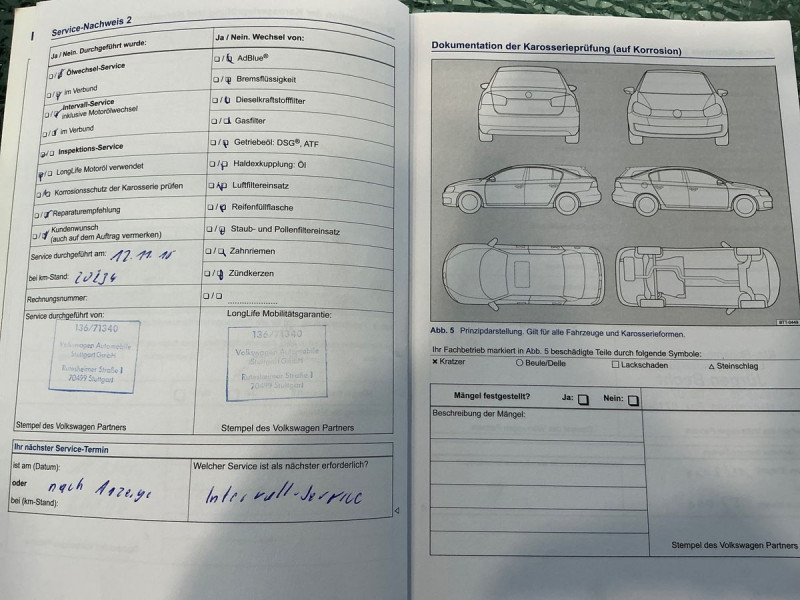 Service-Nachweis 2
Ja / Nein. Durchgeführt wurde:
Ölwechsel-Service
im Verbund
Intervall-Service
inklusive Motorölwechsel
im Verbund
Inspektions-Service
LongLife Motoröl verwendet
Korrosionsschutz der Karosserie prüfen
Reparaturempfehlung
Kundenwunsch
(auch auf dem Auftrag vermerken)
Service durchgeführt am:
bei km-Stand: 20234
Rechnungsnummer:
Service durchgeführt von:
136/71340
Volkswagen Automobile
Stuttgart GmbH
70499 Stuttgart
Stempel des Volkswagen Partners
Ja / Nein. Wechsel von:
AdBlue®
Bremsflüssigkeit
Dieselkraftstofffilter
Gasfilter
Getriebeöl: DSG®, ATF
Haldexkupplung: Öl
Luftfiltereinsatz
Reifenfüllflasche
Staub- und Pollenfiltereinsatz
Zahnriemen
Zündkerzen
LongLife Mobilitätsgarantie:
136/71340
Volkswagen Automobile
Stuttgart GmbH
70499 Stuttgart
Stempel des Volkswagen Partners
Ihr nächster Service-Termin
ist am (Datum):
oder nach Anzeige
bei (km-Stand):
Welcher Service ist als nächster erforderlich?
Intervall-Service
Dokumentation der Karosserieprüfung (auf Korrosion)
Abb. 5 Prinzipdarstellung. Gilt für alle Fahrzeuge und Karosserieformen.
Ihr Fachbetrieb markiert in Abb. 5 beschädigte Teile durch folgende Symbole:
Kratzer Beule/Delle Lackschaden Steinschlag
Mängel festgestellt? Ja: Nein:
Beschreibung der Mängel:
Stempel des Volkswagen Partners